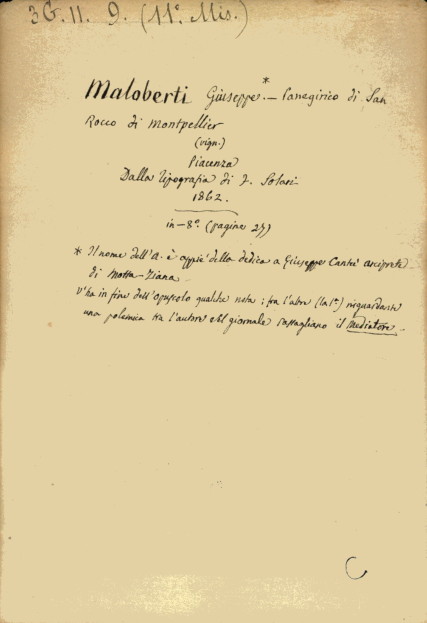 3G. 11. 9. (11º. Mis.)
Maloberti Giuseppe.* — Panegirico di San
Rocco di Montpellier
(vign.)
Piacenza
Dalla tipografia di F. Solari
1862.
in-8º. (pagine 27)
* Il nome dell'A. è appiè della dedica a Giuseppe Cantù arciprete
di Motta-Ziana.
V'ha in fine dell'opuscolo qualche nota; fra l'altre (la 1ª) risguardante
una polemica tra l'autore ed il giornale il Mediatore.
C